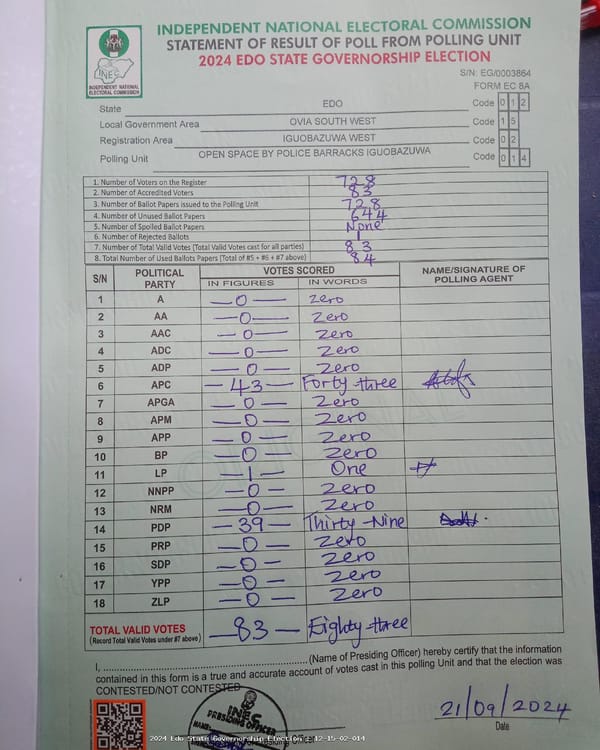 INDEPENDENT NATIONAL ELECTORAL COMMISSION
STATEMENT OF RESULT OF POLL FROM POLLING UNIT
2024 EDO STATE GOVERNORSHIP ELECTION
INEC
INDEPENDENT NATIONAL
ELECTORAL COMMISSION
S/N: EG/0003864
FORM EC 8A
State EDO Code 0 1 2
Local Government Area OVIA SOUTH WEST Code 1 5
Registration Area IGUOBAZUWA WEST Code 0 2
Polling Unit OPEN SPACE BY POLICE BARRACKS IGUOBAZUWA Code 0 1 4
1. Number of Voters on the Register 728
2. Number of Accredited Voters 83
3. Number of Ballot Papers issued to the Polling Unit 728
4. Number of Unused Ballot Papers 644
5. Number of Spoiled Ballot Papers None
6. Number of Rejected Ballots 1
7. Number of Total Valid Votes (Total Valid Votes cast for all parties) 83
8. Total Number of Used Ballots Papers (Total of #5 + #6 + #7 above) 84
S/N POLITICAL PARTY VOTES SCORED NAME/SIGNATURE OF POLLING AGENT
IN FIGURES IN WORDS
1 A —0— Zero
2 AA —0— Zero
3 AAC —0— Zero
4 ADC —0— Zero
5 ADP —0— Zero
6 APC —43— Forty three
7 APGA —0— Zero
8 APM —0— Zero
9 APP —0— Zero
10 BP —0— Zero
11 LP —1— One
12 NNPP —0— Zero
13 NRM —0— Zero
14 PDP —39— Thirty-Nine
15 PRP —0— Zero
16 SDP —0— Zero
17 YPP —0— Zero
18 ZLP —0— Zero
TOTAL VALID VOTES —83— Eighty three
(Record Total Valid Votes under #7 above)
I, ............ (Name of Presiding Officer) hereby certify that the information
contained in this form is a true and accurate account of votes cast in this polling Unit and that the election was
CONTESTED/NOT CONTESTED
INEC
PRESIDING OFFICER
21/09/2024
Date
2024 Edo State Governorship Election - 12-15-02-014